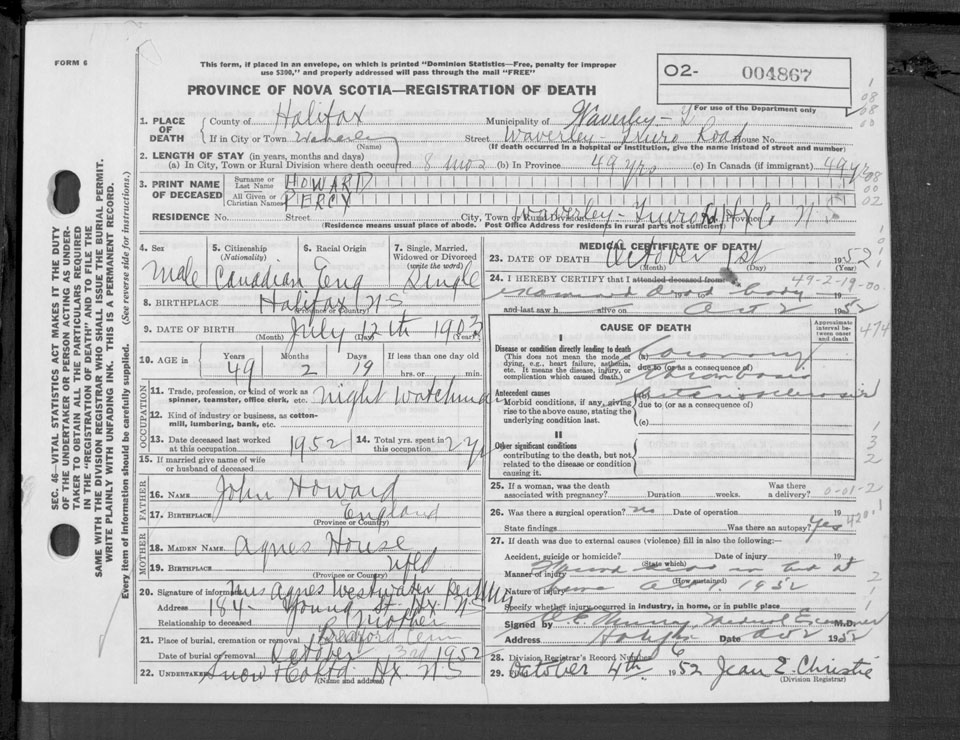 FORM 6
This form, if placed in an envelope, on which is printed "Dominion Statistics—Free, penalty for improper
use $300," and properly addressed will pass through the mail "FREE"
PROVINCE OF NOVA SCOTIA—REGISTRATION OF DEATH
O2- 004867
For use of the Department only
SEC. 46—VITAL STATISTICS ACT MAKES IT THE DUTY
OF THE UNDERTAKER OR PERSON ACTING AS UNDER-
TAKER TO OBTAIN ALL THE PARTICULARS REQUIRED
IN THE "REGISTRATION OF DEATH" AND TO FILE THE
SAME WITH THE DIVISION REGISTRAR WHO SHALL ISSUE THE BURIAL PERMIT.
WRITE PLAINLY WITH UNFADING INK. THIS IS A PERMANENT RECORD.
Every item of information should be carefully supplied. (See reverse side for instructions.)
1. PLACE OF DEATH County of Halifax Municipality of Waverley
If in City or Town Waverley (Name) Street Waverley - Truro Road House No.
(If death occurred in a hospital or institution, give the name instead of street and number)
2. LENGTH OF STAY (in years, months and days)
(a) In City, Town or Rural Division where death occurred 8 mos (b) In Province 49 yrs (c) In Canada (if immigrant) 49 yrs
3. PRINT NAME OF DECEASED Surname or Last Name HOWARD
All Given or Christian Names PERCY
RESIDENCE No. Street City, Town or Rural Division Waverley - Truro Rd Hx Co Province N S
(Residence means usual place of abode. Post Office Address for residents in rural parts not sufficient)
4. Sex Male
5. Citizenship (Nationality) Canadian
6. Racial Origin Eng
7. Single, Married, Widowed or Divorced (write the word) Single
8. BIRTHPLACE Halifax N S (Province or Country)
9. DATE OF BIRTH July 12th 1903 (Month) (Day) (Year)
10. AGE in Years 49 Months 2 Days 19 If less than one day old hrs. or min.
OCCUPATION
11. Trade, profession, or kind of work as spinner, teamster, office clerk, etc. Night Watchman
12. Kind of industry or business, as cotton-mill, lumbering, bank, etc.
13. Date deceased last worked at this occupation 1952
14. Total yrs. spent in this occupation 2 yrs
15. If married give name of wife or husband of deceased
FATHER
16. NAME John Howard
17. BIRTHPLACE England (Province or Country)
MOTHER
18. MAIDEN NAME Agnes House
19. BIRTHPLACE Nfld (Province or Country)
20. Signature of informant Mrs Agnes Westwater
Address 184- Young St Hx N S
Relationship to deceased Mother
21. Place of burial, cremation or removal
Date of burial or removal October 3rd 1952
22. UNDERTAKER Snow & Co Ltd Hx. N S (Name and address)
MEDICAL CERTIFICATE OF DEATH
23. DATE OF DEATH October 1st 1952 (Month) (Day) (Year)
24. I HEREBY CERTIFY that I attended deceased from 49-2-19-00
examined dead body 19
and last saw h alive on Oct 2 1952
474
CAUSE OF DEATH
Approximate interval between onset and death
I
Disease or condition directly leading to death (a) Coronary
(This does not mean the mode of dying, e.g., heart failure, asthenia, etc. It means the disease, injury, or complication which caused death.)
due to (or as a consequence of) Thrombosis
Antecedent causes
Morbid conditions, if any, giving rise to the above cause, stating the underlying condition last.
(b) Arteriosclerosis
due to (or as a consequence of)
(c)
II
Other significant conditions
contributing to the death, but not related to the disease or condition causing it.
25. If a woman, was the death associated with pregnancy? Duration weeks. Was there a delivery? 0-01-2
26. Was there a surgical operation? no Date of operation 19
State findings Was there an autopsy? Yes 420.1
27. If death was due to external causes (violence) fill in also the following:—
Accident, suicide or homicide? (State which) Date of injury 19
Manner of injury Found dead in bed at (How sustained)
Nature of injury home Oct 1. 1952
Specify whether injury occurred in industry, in home, or in public place
Signed by Medical Examiner M.D.
Address Halifax Date Oct 2 1952
28. Division Registrar's Record Number 6
29. October 4th 1952 Jean E. Christie (Division Registrar)